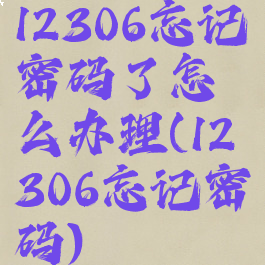 12306忘记
密码了怎
么办理(12
306忘记密
码)